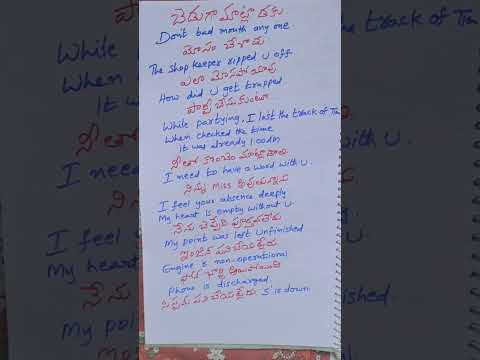 చెడుగా మాట్లాడకు
Don't bad mouth any one.
మోసం చేశాడు
The shop keeper ripped U off
ఎలా మోసపోయావు
How did U get trapped
పార్టీ చేసుకుంటూ
While partying, I lost the track of Tim
When checked the time
It was already 1.00 am
నీతో కొంచెం మాట్లాడాలి
I need to have a word with U.
నిన్ను Miss అవుతున్నాను
I feel your absence deeply
My heart is empty without U.
నేను చెప్పేది పూర్తవలేదు
My point was left Unfinished
ఇంజిన్ పనిచేయట్లేదు
Engine is non-operational
ఫోన్ ఛార్జి అయిపోయింది
Phone is discharged
సిస్టమ్ పనిచేయట్లేదు. S' is down.